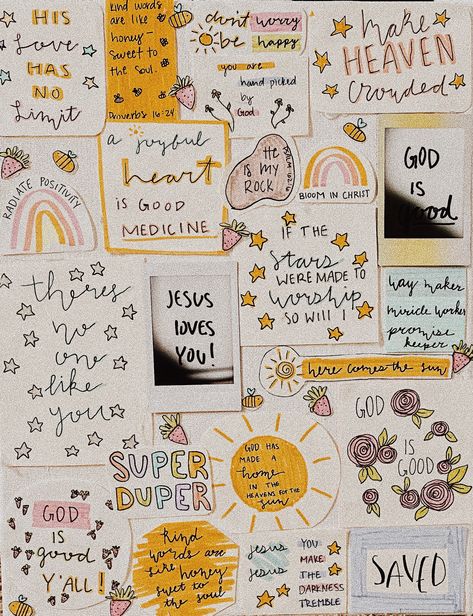 HIS
Love
HAS
NO
Limit
kind words
are like
honey-
sweet to
the soul.
Proverbs 16:24
don't worry
be happy
you are
hand picked
by
God
Make
HEAVEN
Crowded
RADIATE POSITIVITY
a joyful
heart
IS GOOD
MEDICINE
He
IS MY
ROCK
BLOOM IN CHRIST
GOD
IS
Good
theres
no
one
like
you
JESUS
LOVES
YOU!
IF THE
Stars
WERE MADE TO
Worship
SO WILL I
way maker
miricle worker
promise
keeper
here comes the sun
SUPER
DUPER
GOD HAS
MADE A
home
IN THE
HEAVENS FOR THE
sun
GOD
IS
GOOD
GOD
IS
good
Y'ALL!
Kind
words are
like honey
swet to
the soul
Jesus
Jesus
YOU
MAKE
THE
DARKNESS
TREMBLE
SAVED